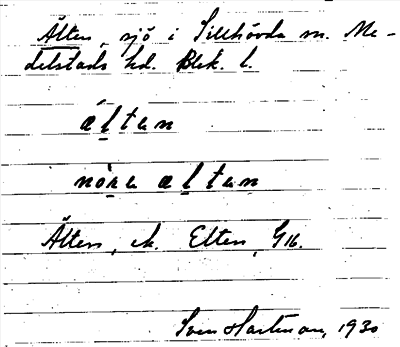 Älten, sjö i Sillhövda sn. Me-
delstads hd. Blek. l.
ál̠tan
nòra al̠tan̠
Älten, ek. Elten, G16.
Sven Hartman, 1930